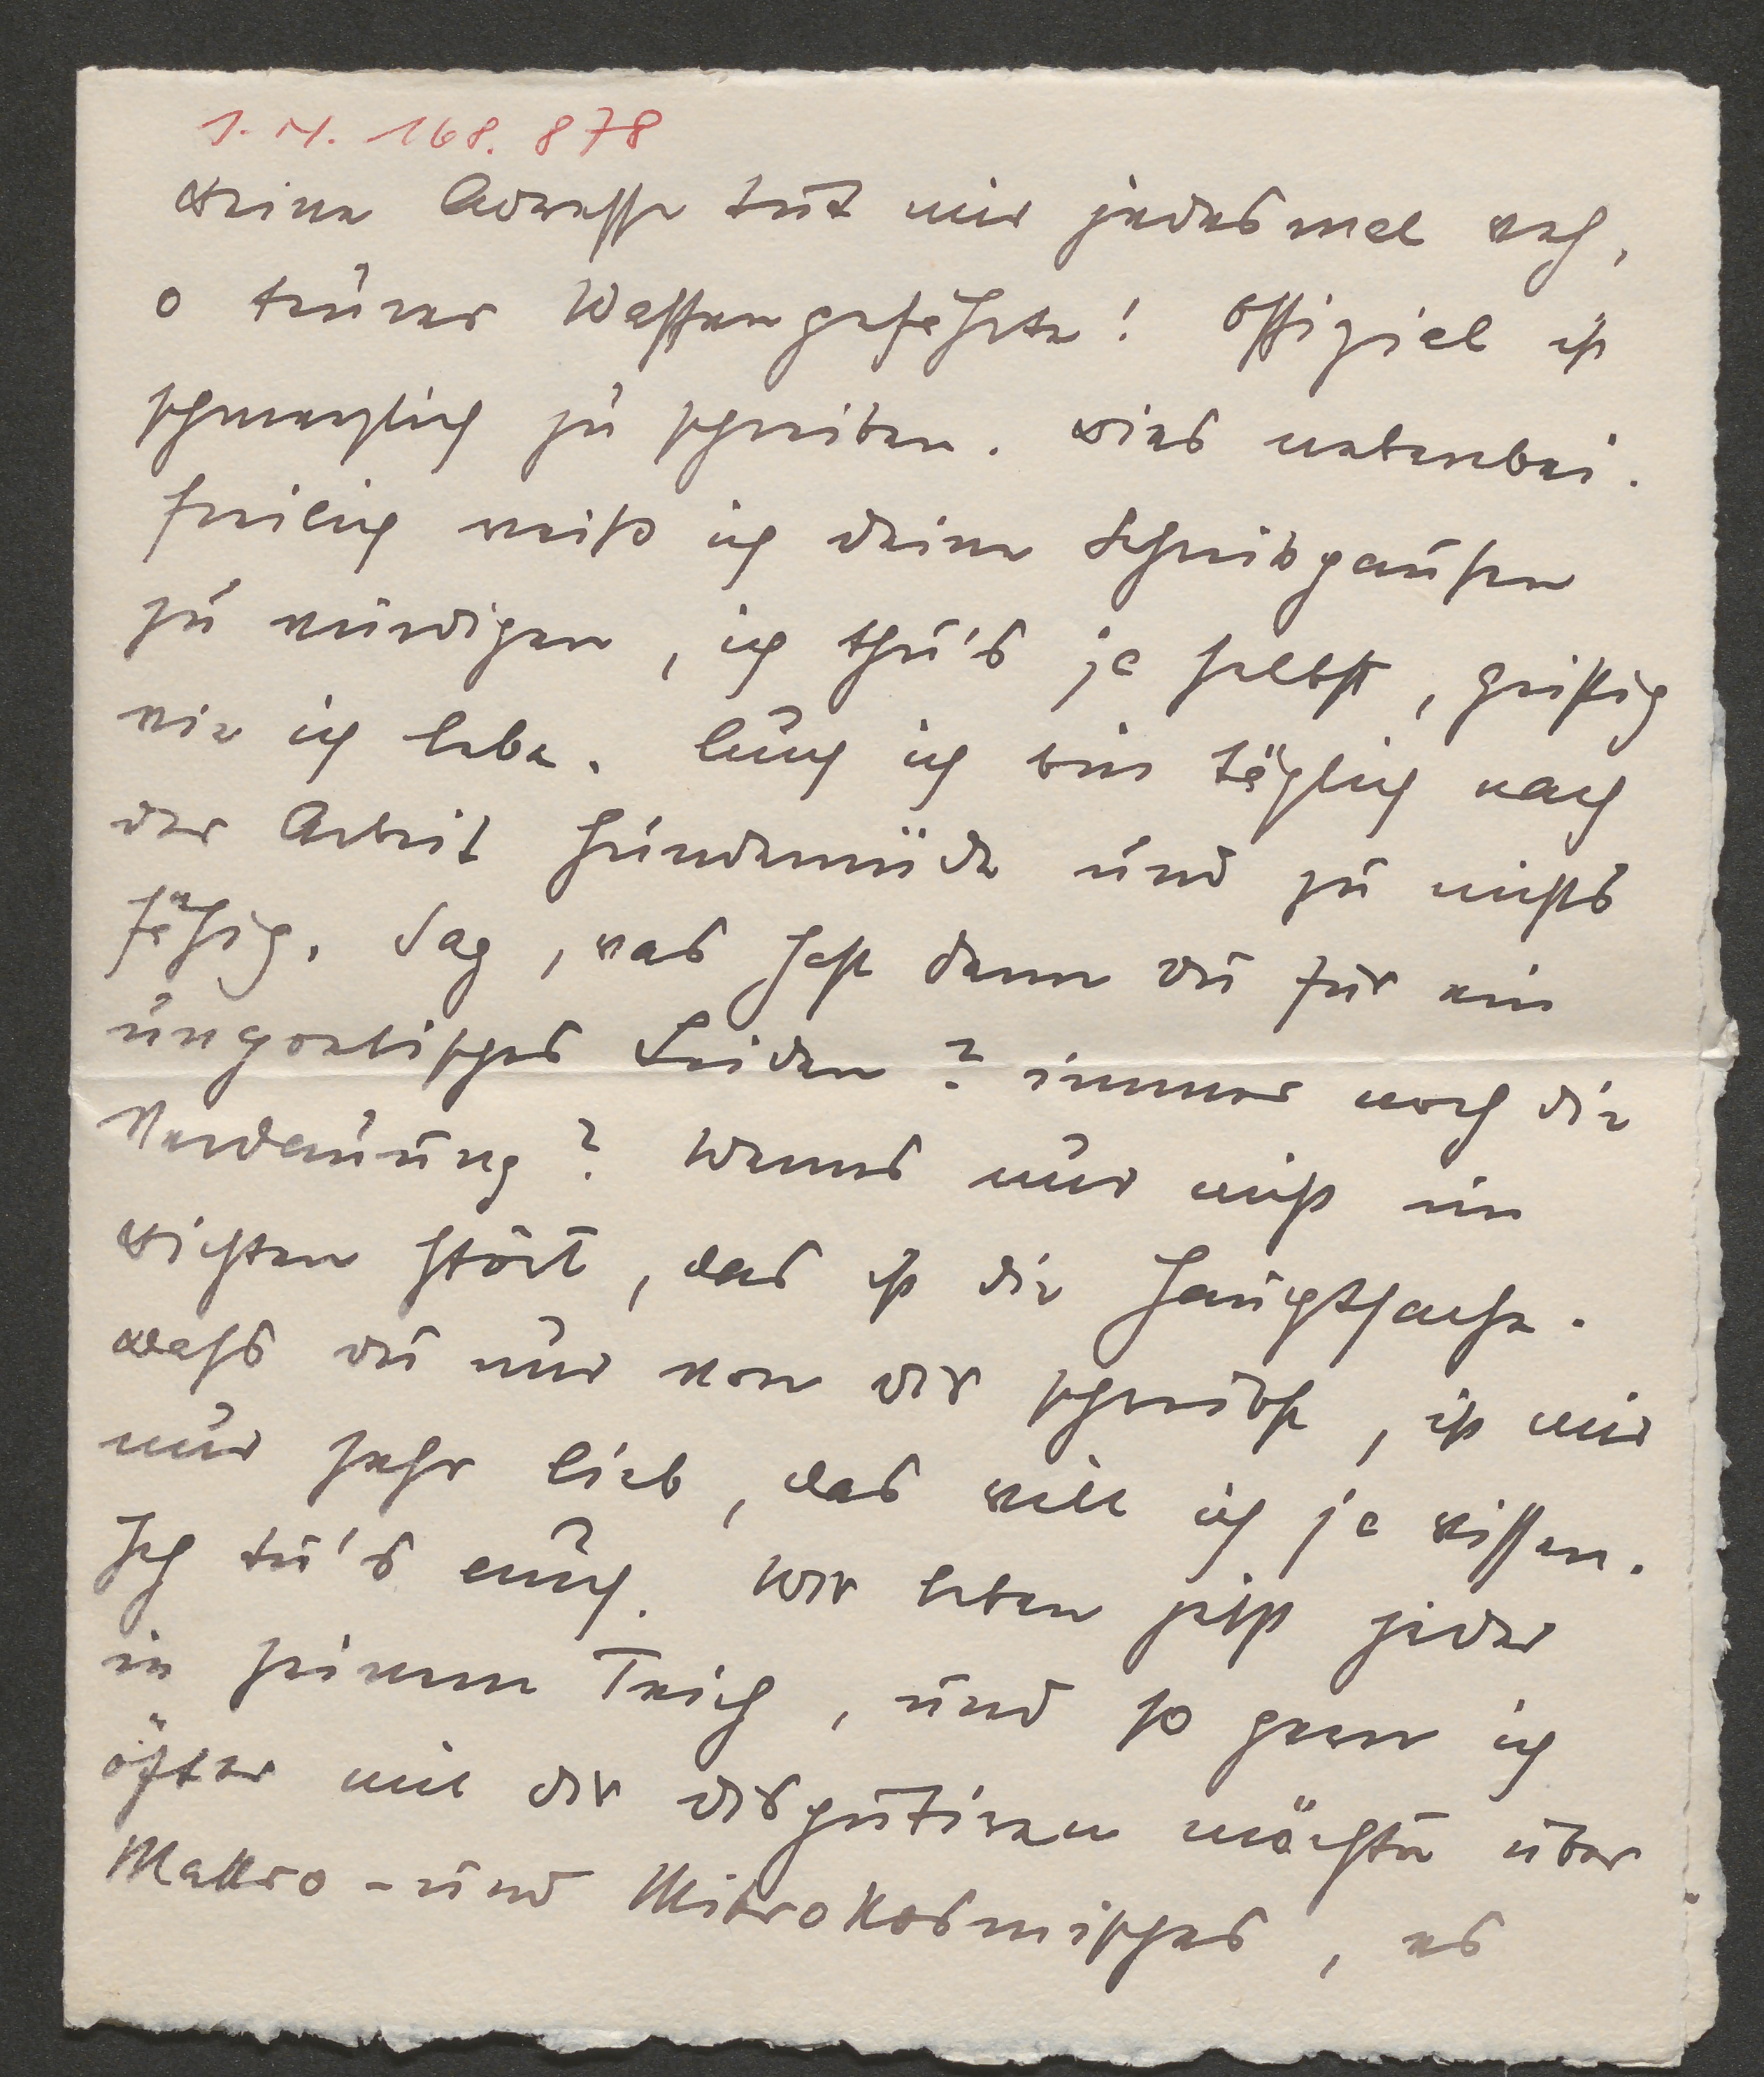 J. N. 168.878
Deine Adresse tut mir jedesmal weh,
o teurer Waffengefährte! Offiziel ist
schmerzlich zu schreiben. Dies nebenbei.
freilich weiß ich deine Schreibpausen
zu würdigen, ich thu's ja selbst, geistig
wie ich lebe. Auch ich bin täglich nach
der Arbeit hundemüde und zu nichts
fähig. Sag, was hast denn du für ein
unpoetisches Leiden? immer noch die
Verdauung? Wenns nur nicht im
Dichten stört, das ist die Hauptsache.
dass du nur von dir schreibst, ist mir
nur sehr lieb, das will ich ja wissen.
Ich tu's auch. Wir leben jetzt jeder
in seinem Teich, und so gern ich
öfter mit dir disputieren möchte über
Makro- und Mikrokosmisches, es